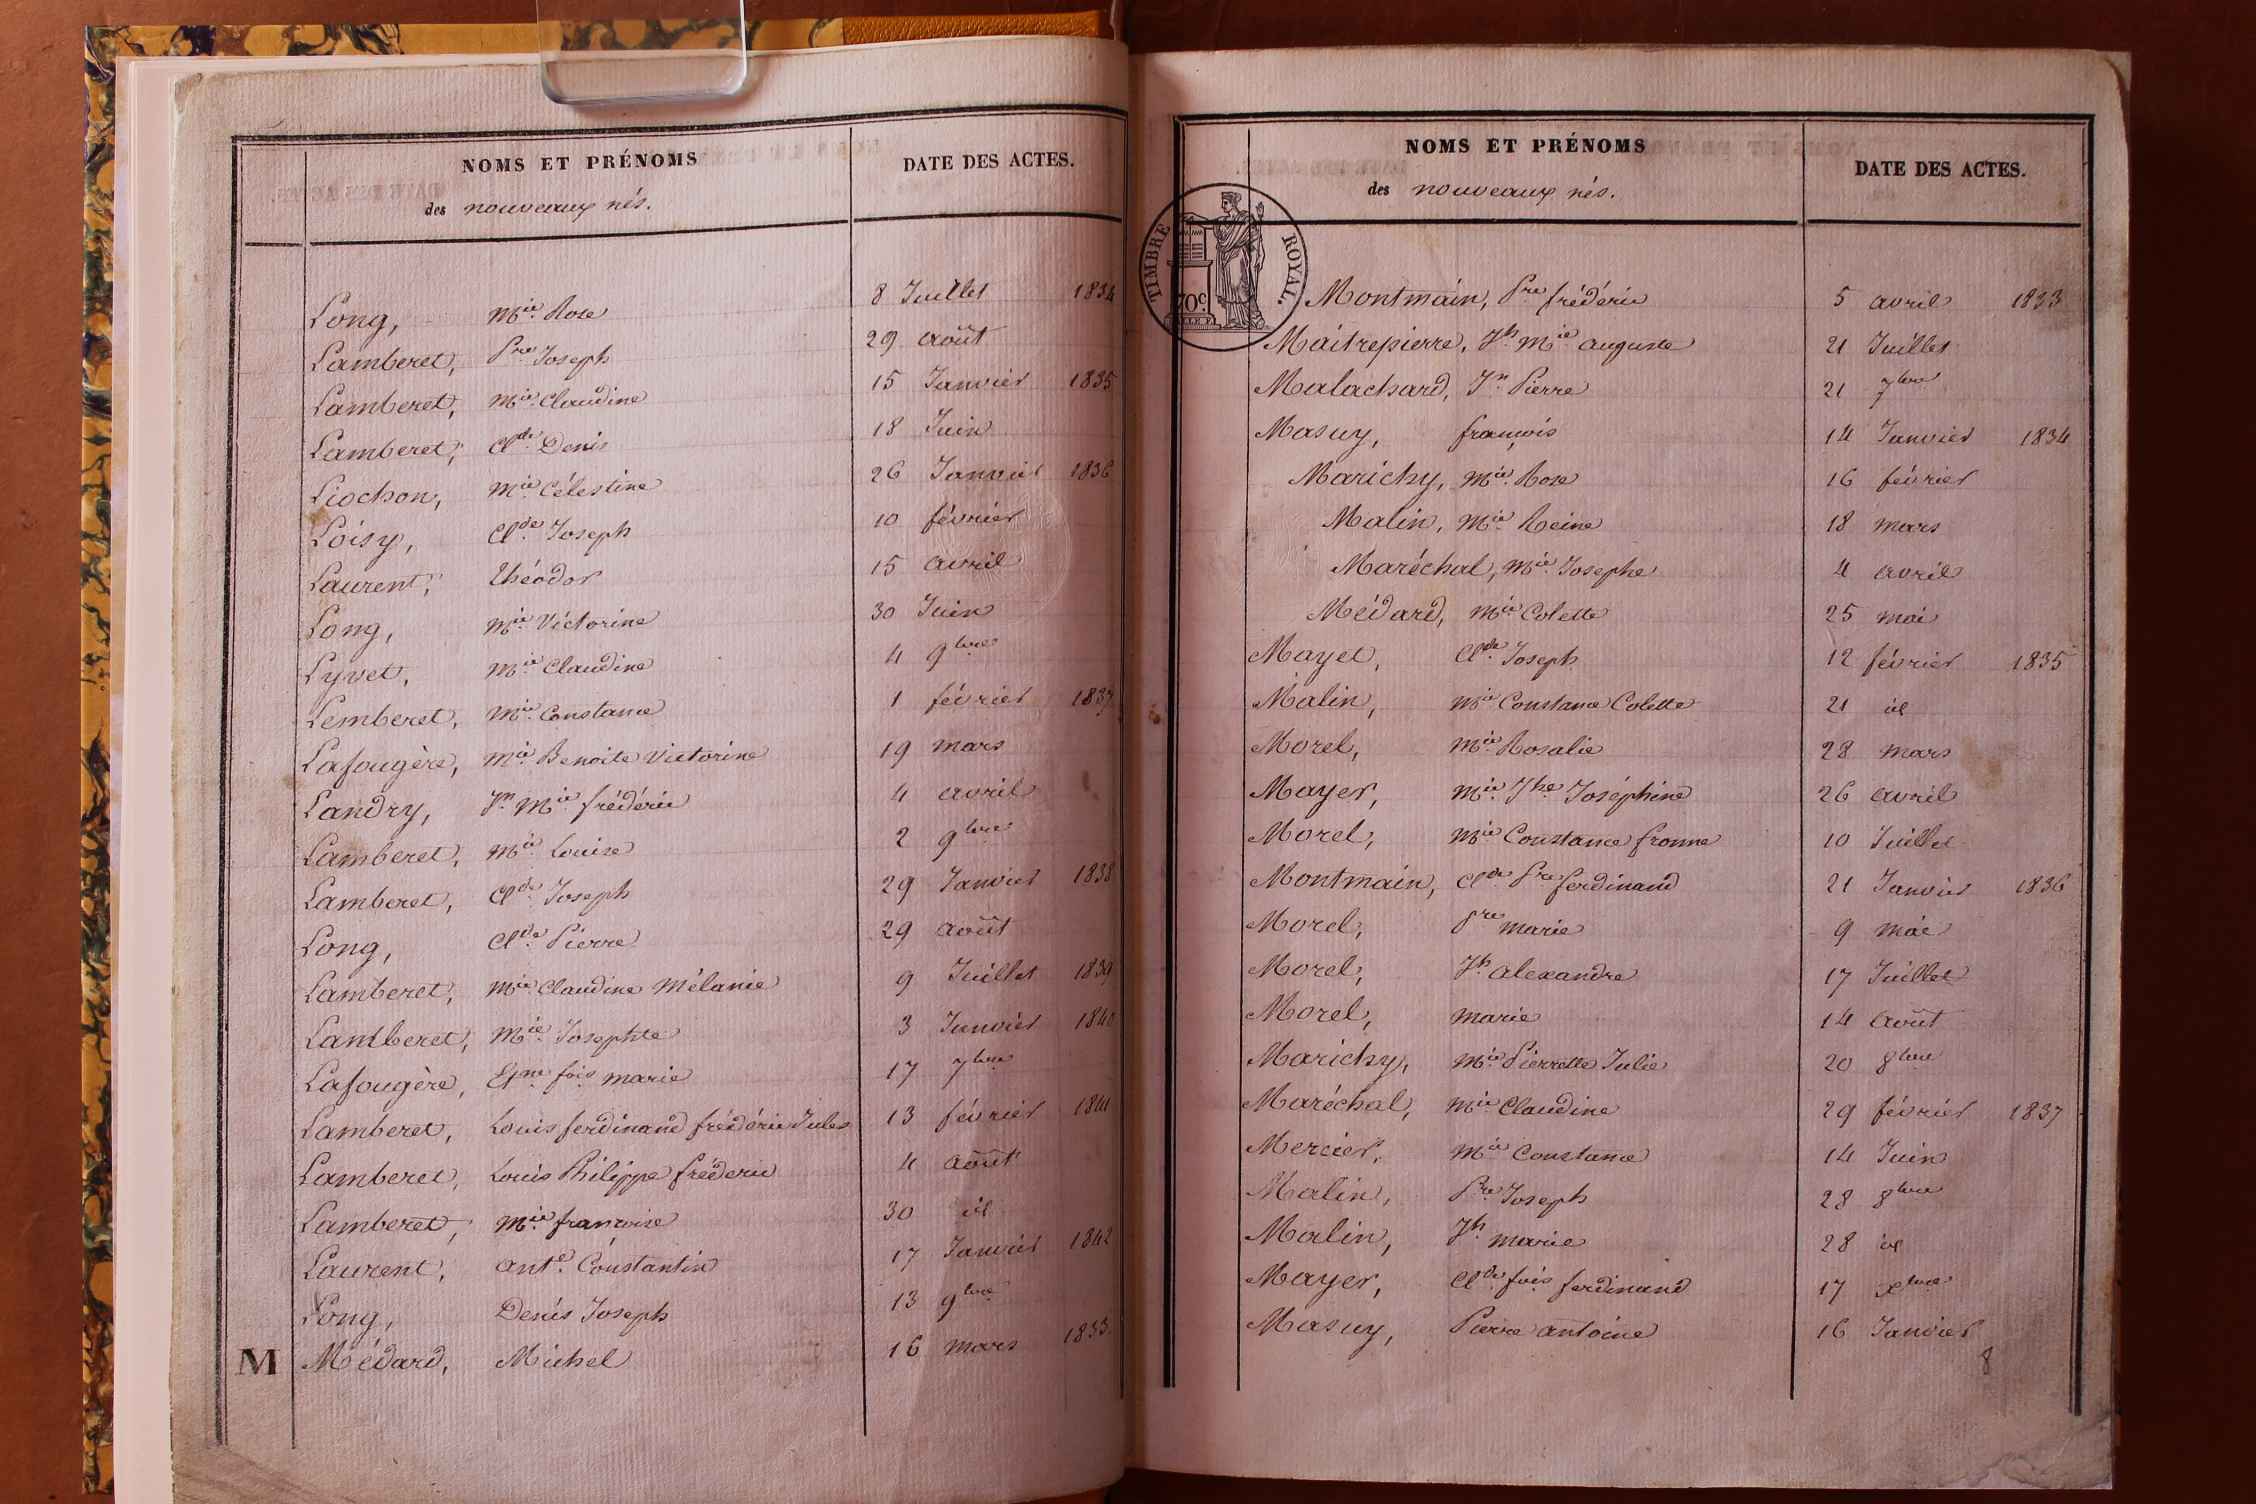 NOMS ET PRÉNOMS
des nouveaux nés.
DATE DES ACTES.
Long, Mie Rose 8 Juillet 1834
Lamberet, Pre Joseph 29 août
Lamberet, Mie Claudine 15 Janvier 1835
Lamberet, Cde Denis 18 Juin
Liochon, Mie Célestine 26 Janvier 1836
Loisy, Cde Joseph 10 février
Laurent, Théodor 15 avril
Long, Mie Victorine 30 Juin
Lyvet, Mie Claudine 4 9bre
Lemberet, Mie Constance 1 février 1837
Lafougère, Mie Benoite Victorine 19 mars
Landry, Jn Mie frédéric 4 avril
Lamberet, Mie Louise 2 9bre
Lamberet, Cde Joseph 29 Janvier 1838
Long, Cde Pierre 29 août
Lamberet, Mie Claudine Mélanie 9 Juillet 1839
Lamberet, Mie Josephte 3 Janvier 1840
Lafougère, fois marie 17 7bre
Lamberet, Louis ferdinand frédéric Jules 13 février 1841
Lamberet, Louis Philippe fréderic 4 août
Lamberet, Mie francoise 30 id
Laurent, Ante Constantin 17 Janvier 1842
Long, Denis Joseph 13 9bre
M Médard, Michel 16 mars 1833
NOMS ET PRÉNOMS
des nouveaux nés.
DATE DES ACTES.
TIMBRE ROYAL.
70c
Montmain, Pre frédéric 5 avril 1833
Maitrepierre, Jh Mie auguste 21 Juillet
Malachard, Jn Pierre 21 7bre
Masuy, françois 14 Janvier 1834
Marichy, Mie Rose 16 février
Malin, Mie Reine 18 mars
Maréchal, Mie Josephe 4 avril
Médard, Mie Colette 25 mai
Mayet, Cde Joseph 12 février 1835
Malin, Mie Constance Colette 21 id
Morel, Mie Rosalie 28 mars
Mayer, Mie Jhe Joséphine 26 avril
Morel, Mie Constance fronne 10 Juillet
Montmain, Cde Pre ferdinand 21 Janvier 1836
Morel, Pre marie 9 mai
Morel, Jh alexandre 17 Juillet
Morel, marie 14 août
Marichy, Mie Pierrette Julie 20 8bre
Maréchal, Mie Claudine 29 février 1837
Mercier, Mie Constance 14 Juin
Malin, Pre Joseph 28 8bre
Malin, Jh marie 28 id
Mayer, Cde fois ferdinand 17 xbre
Masuy, Pierre antoine 16 Janvier
8